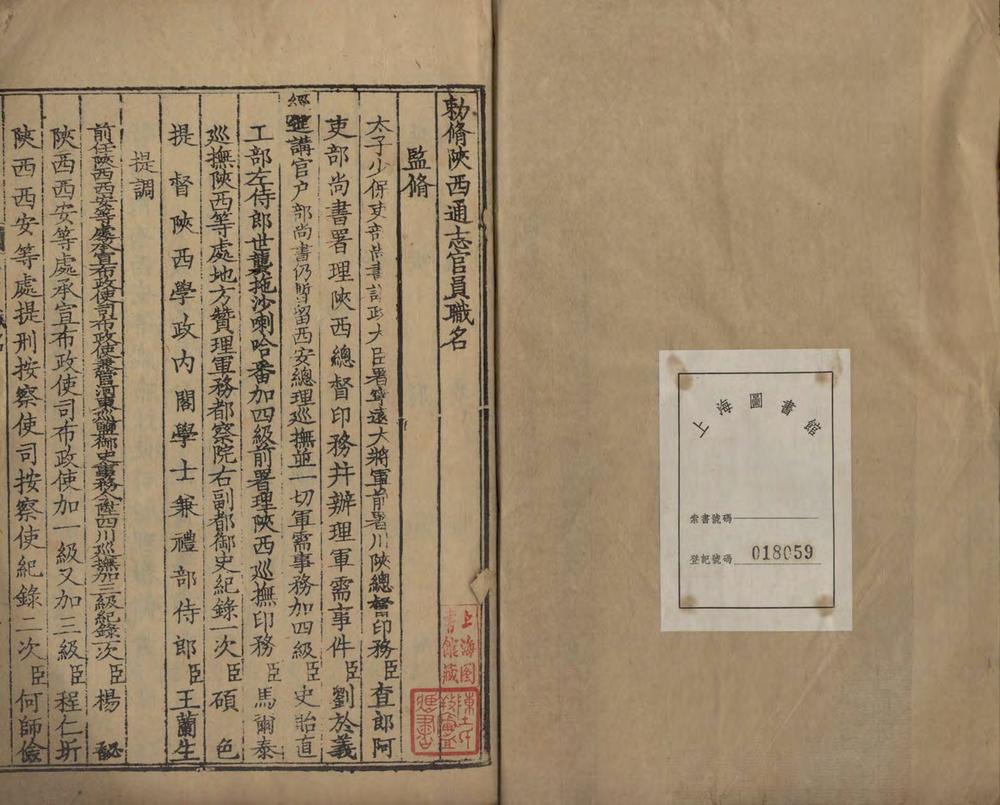 上海圖書館
索書號碼
登記號碼 018059
勅脩陝西通志官員職名
監脩
太子少保吏部尚書議政大臣署寧遠大將軍前署川陝總督印務臣查郎阿
吏部尚書署理陝西總督印務并辦理軍需事件臣劉於義
經筵講官户部尚書仍暫留西安總理巡撫並一切軍需事務加四級臣史貽直
工部左侍郎世襲拖沙喇哈番加四級前署理陝西巡撫印務臣馬爾泰
巡撫陝西等處地方贊理軍務都察院右副都御史紀錄一次臣碩色
提督陝西學政内閣學士兼禮部侍郎臣王蘭生
提調
前任陝西西安等處承宣布政使司布政使兼管河東巡鹽御史事務今陞四川巡撫加三級紀錄一次臣楊馝
陝西西安等處承宣布政使司布政使加一級又加三級臣程仁圻
陝西西安等處提刑按察使司按察使紀錄二次臣何師儉
上海图書館藏